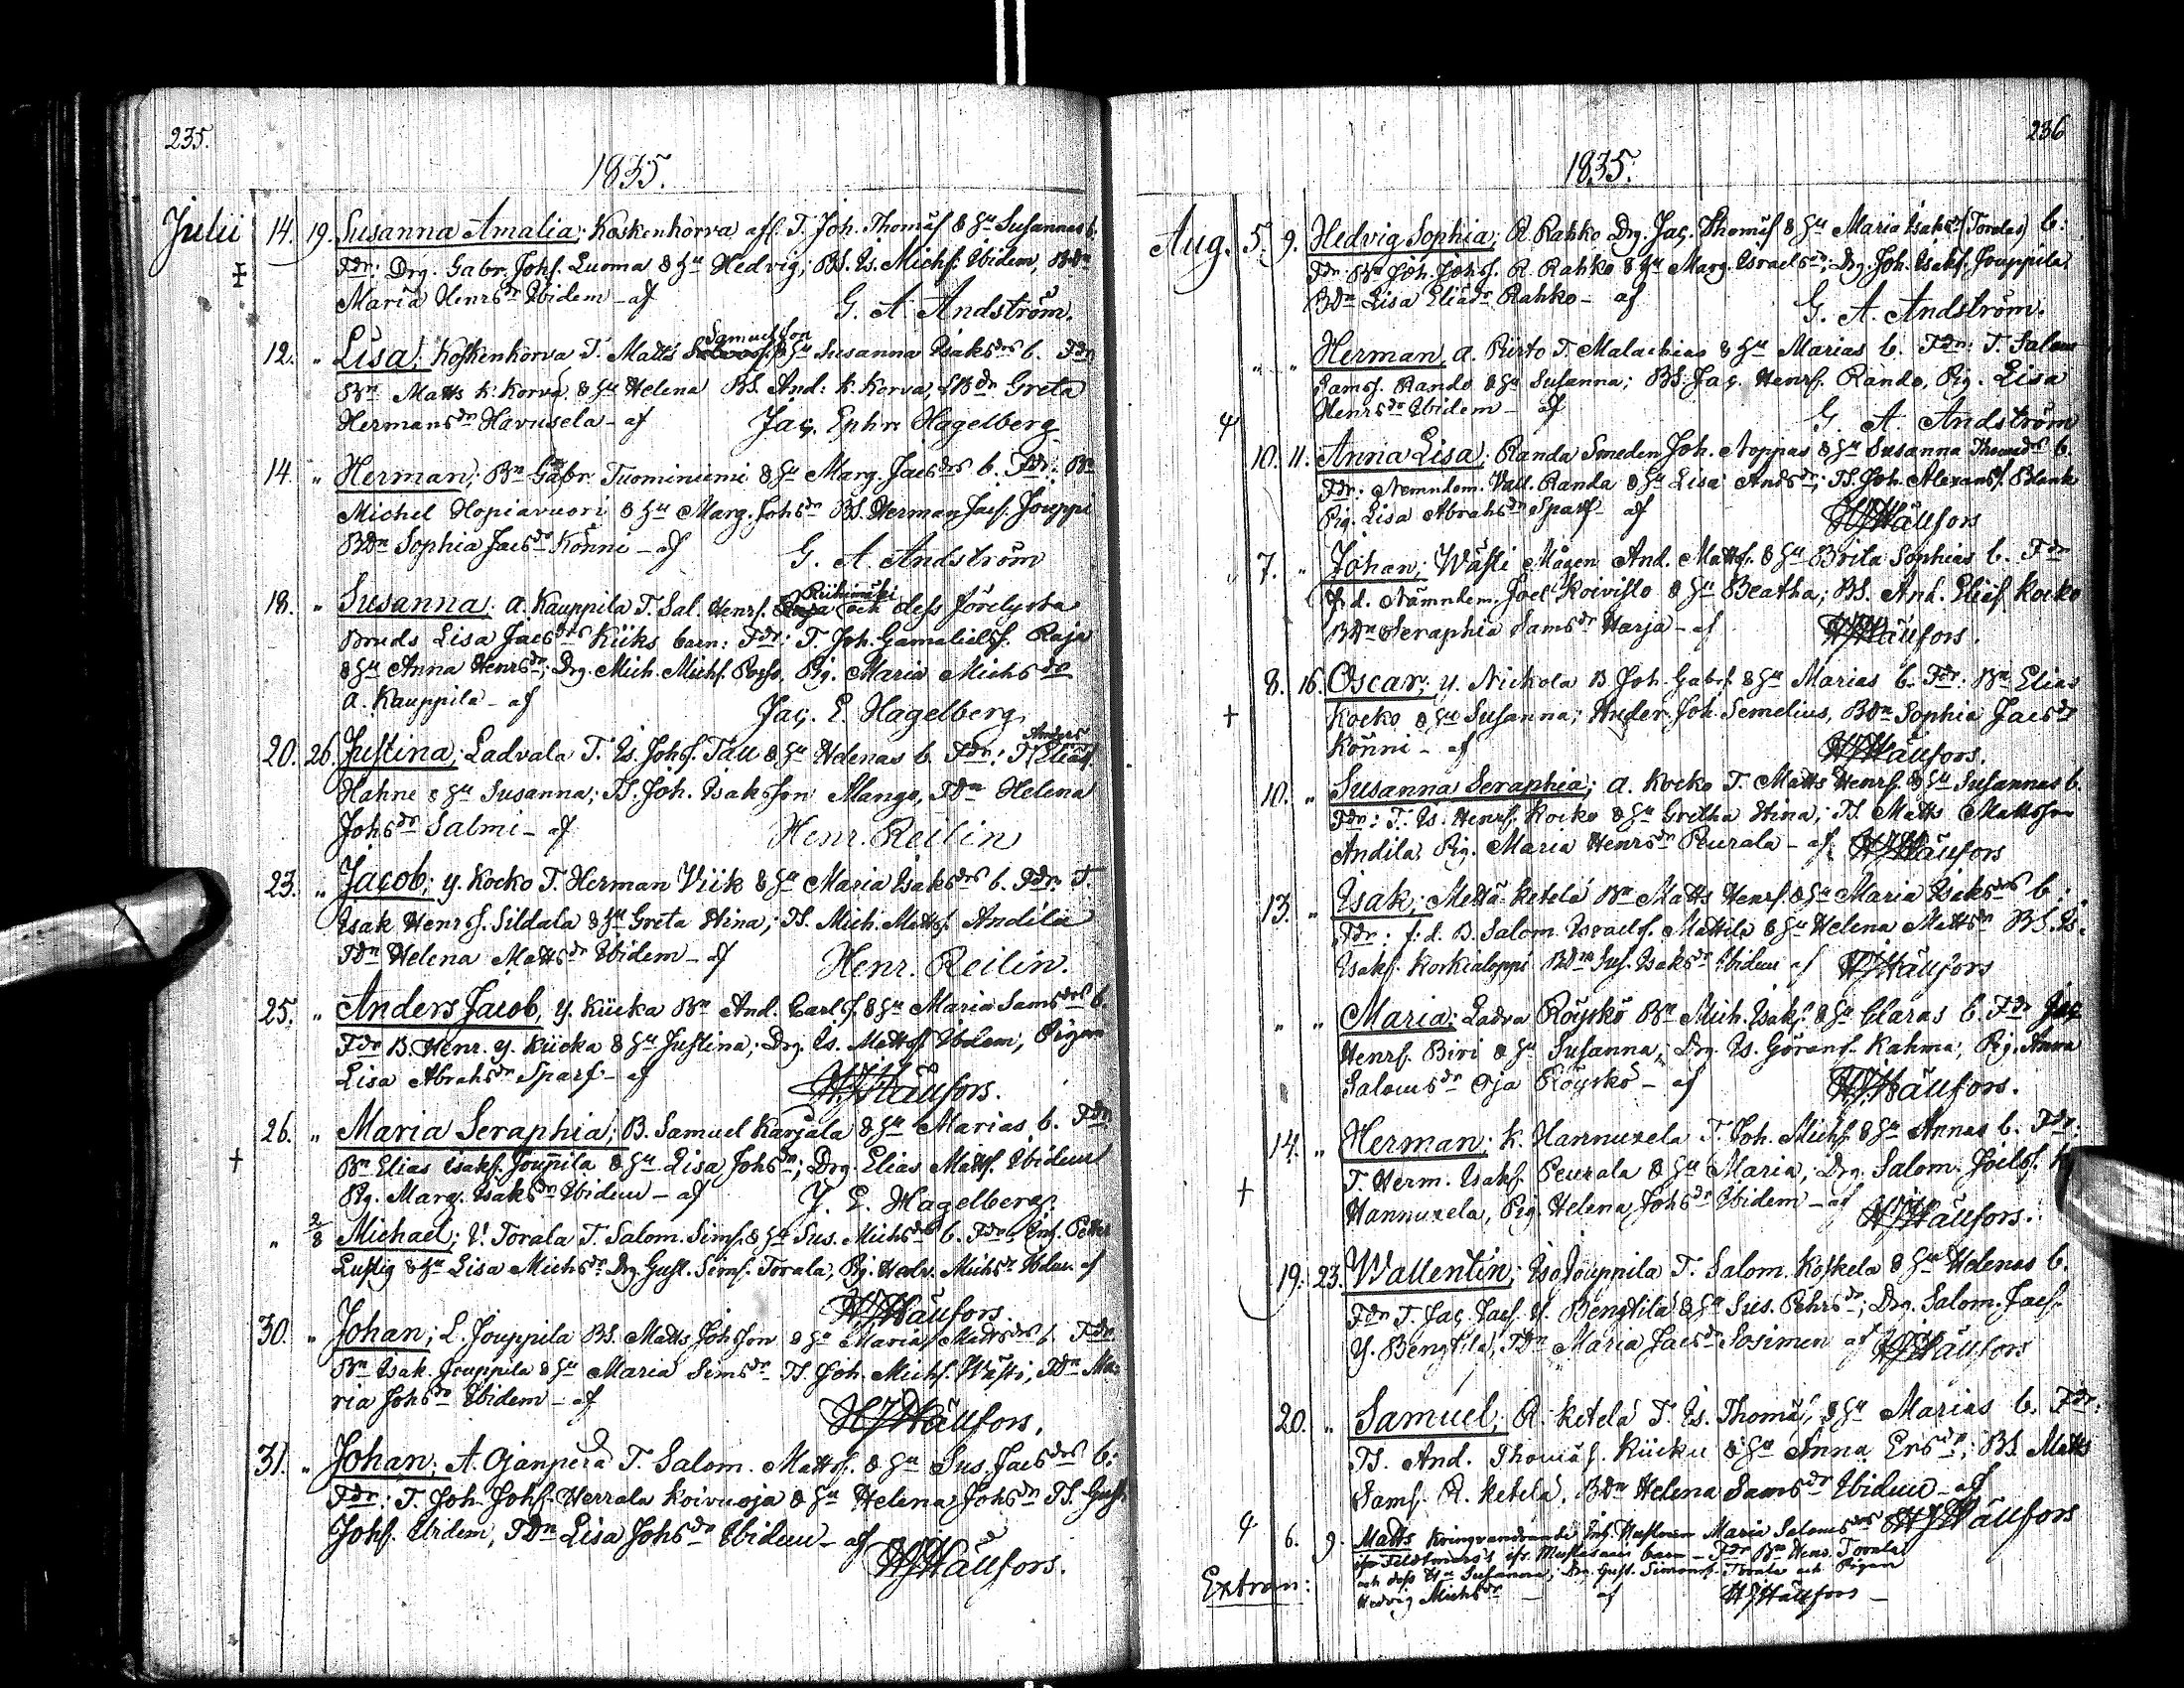 235.
1835.
Julii 14. 19. Susanna Amalia; Koskenkorva afs. T. Joh. Thomæs. & Hu Susannas b.
Fdr: Drg. Gabr. Johs. Luoma & Hu Hedvig; BS. Is. Michs. Ibidem, BDn
Maria Henrsdr Ibidem - af G. A. Andström.
Samuelsson
12. " Lisa; Koskenkorva T. Matts & Hu Susanna Isaksdrs b. Fdr
Bn Matts k. Korva, & Hu Helena BS. And: k. Korva, BDn Greta
Hermansdr Havusela - af Jac. Ephr. Hagelberg
14. " Herman; Bn Gabr. Tuominiemi & Hu Marg. Jacsdrs b. Fdr: Bn
Michel Hopiavuori & Hu Marg. Johsdr BS. Herman Jacs. Jouppi
BDn Sophia Jacsdr Könni - af G. A. Andström
Riihimäki
18. " Susanna; a. Kauppila T. Sal. Henrs. och dess förelysta
Bruds Lisa Jacsdrs Kiiks barn: Fdr: T. Joh. Gamalielss. Raja
& Hu Anna Henrsdr; Drg. Mich. Michs. Pig. Maria Michsdr
a. Kauppila - af Jac. E. Hagelberg
Anders
20. 26. Justina; Ladvala T. Is. Johs. Tau & Hu Helenas b. Fdr: T. Eliæs.
Hahne & Hu Susanna; TS. Joh. Isaksson Mango, TDn Helena
Johsdr Salmi - af Henr. Reilin
23. " Jacob; y. Kocko T. Herman Viik & Hu Maria Isaksdrs b. Fdr: T.
Isak Henrs. Sildala & Hu Greta Stina; TS. Mich. Matts. Andila
TDn Helena Mattsdr Ibidem - af Henr. Reilin.
25. " Anders Jacob, y. Kiicka Bn And. Carls. & Hu Maria Samsdrs b.
Fdr B. Henr. y. Kiicka & Hu Justina; Drg. Is. Matts. Ibidem, Pigan
Lisa Abrahsdr Sparf - af HJHällfors.
26. " Maria Seraphia; B. Samuel Karjala & Hu Marias b. Fdr
Bn Elias Isaks. Jouppila & Hu Lisa Johsdr; Drg. Elias Matts. Ibidem
Pig. Marg. Isaksdr Ibidem - af J. E. Hagelberg.
" 2/8 Michael; Y. Torala T. Salom. Sims. & Hu Sus. Michsdrs b. Fdr Inh. Petter
Lustig & Hu Lisa Michsdr Drg Gust. Sims. Torala, Pig. Hedv. Michsdr Ibidem af
HJHällfors.
30. " Johan; L. Jouppila BS. Matts Johsson & Hu Maria Mattsdrs b. Fdr
Bn Isak Jouppila & Hu Maria Simsdr TS. Joh. Michs. Wästi, TDn Ma-
ria Johsdr Ibidem - af HJHällfors.
31. " Johan; A. Ojanperä T. Salom. Matts. & Hu Sus. Jacsdrs b:
Fdr: T. Joh. Johs. Herrala Koivuoja & Hu Helena Johsdr TS. Gust.
Johs. Ibidem, TDn Lisa Johsdr Ibidem - af HJHällfors.
236
1835.
Aug. 5. 9. Hedvig Sophia; R. Rahko Drg. Jac. Thomæs & Hu Maria Isaksdr (Toralas) b:
Fdr: Bn Joh. Johs. R. Rahko & Hu Marg. Israelsdr; Drg. Joh. Isaks. Jouppila
BDn Lisa Eliædr Rahko - af G. A. Andström.
" " Herman, a. Pirto T. Malachias & Hu Marias b. Fdr: T. Salom
Sams. Rando & Hu Susanna; BS. Jac. Henrs. Rando, Pig. Lisa
Henrsdr Ibidem - af G. A. Andström
10. 11. Anna Lisa; Randa Smeden Joh. Noppas & Hu Susanna Thomædrs b.
Fdr: Nemndem. Vall. Randa & Hu Lisa Andsdr; TS. Joh. Alexanss. Blank
Pig. Lisa Abrahsdr Sparf - af HJHällfors
" 7. " Johan; Wästi Mågen And. Matts. & Hu Brita Sophias b. Fdr
f. d. Nämndem. Joel Koivisto & Hu Beatha; BS. And. Eliæs. Kocko
BDn Seraphia Samsdr Harja - af HJHällfors.
8. 16. Oscar; y. Nickola B. Joh. Gabrs. & Hu Marias b. Fdr: Bn Elias
Kocko & Hu Susanna; Under. Joh. Semelius, BDn Sophia Jacsdr
Könni - af HJHällfors.
10. " Susanna Seraphia; a. Kocko T. Matts Henrs. & Hu Susannas b.
Fdr: T. Is. Henrs. Kocko & Hu Gretha Stina; TS. Matts Mattsson
Andila, Pig. Maria Henrsdr Peurala - af HJHällfors
13. " Isak; Mettä Ketelä Bn Matts Henrs. & Hu Maria Isaksdrs b:
Fdr: f. d. B. Salom. Israels. Mattila & Hu Helena Mattsdr BS. Is.
Isaks. Korkialoppi BDn Sus. Isaksdr Ibidem af HJHällfors
" " Maria; Ladva Röyskö Bn Mich. Isaks. & Hu Claras b. Fdr Jac
Henrs. Biri & Hu Susanna; Drg. Is. Görans. Kahma, Pig. Anna
Salomsdr Oja Röyskö - af HJHällfors.
14. " Herman; k. Hannuxela T. Joh. Michs. & Hu Annas b. Fdr:
T. Herm. Isaks. Peurala & Hu Maria, Drg. Salom. Joels. k
Hannuxela, Pig. Helena Johsdr Ibidem - af HJHällfors.
19. 23. Wallentin; Iso Jouppila T. Salom. Koskela & Hu Helenas b.
Fdr T. Jac. Jacs. Y. Bengtila & Hu Sus. Pehrsdr; Drg. Salom. Jacs.
Y. Bengtila, TDn Maria Jacsdr Sosimen af HJHällfors
20. " Samuel; R. Ketelä T. Is. Thomæs. & Hu Marias b. Fdr:
TS. And. Thomæs. Kiicku & Hu Anna Ersdr; BS. Matts
Sams. R. Ketelä. BDn Helena Samsdr Ibidem - af
HJHällfors
6. 9. Matts Kringvandrande Inh. Hustrun Maria Salomsdrs
ifr. barn - Fdr Bn Henr. Torala
Extran: och dess Hu Susanna; Dr. Gust. Simons. Torala och Pigan
Hedvig Michsdr - af HJHällfors -